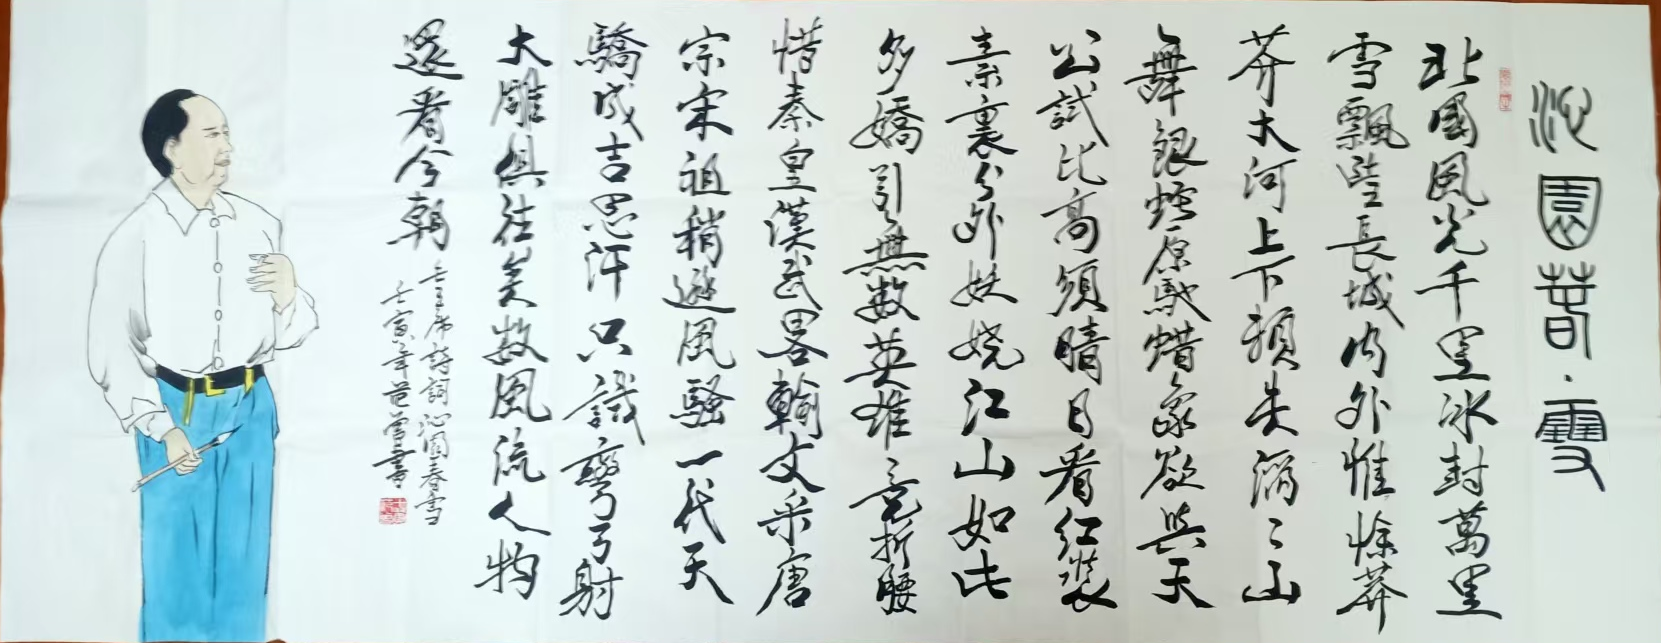 沁園春·雪
北國風光千里冰封萬里
雪飄望長城內外惟餘莽
莽大河上下頓失滔〻山
舞銀蛇原馳蜡象欲與天
公試比高須晴日看紅裝
素裹分外妖嬈江山如此
多嬌引無数英雄竞折腰
惜秦皇漢武畧輸文采唐
宗宋祖稍遜風騷一代天
驕成吉思汗只識彎弓射
大雕俱往矣数風流人物
還看今朝
毛主席詩詞沁園春雪
壬寅年范曾書